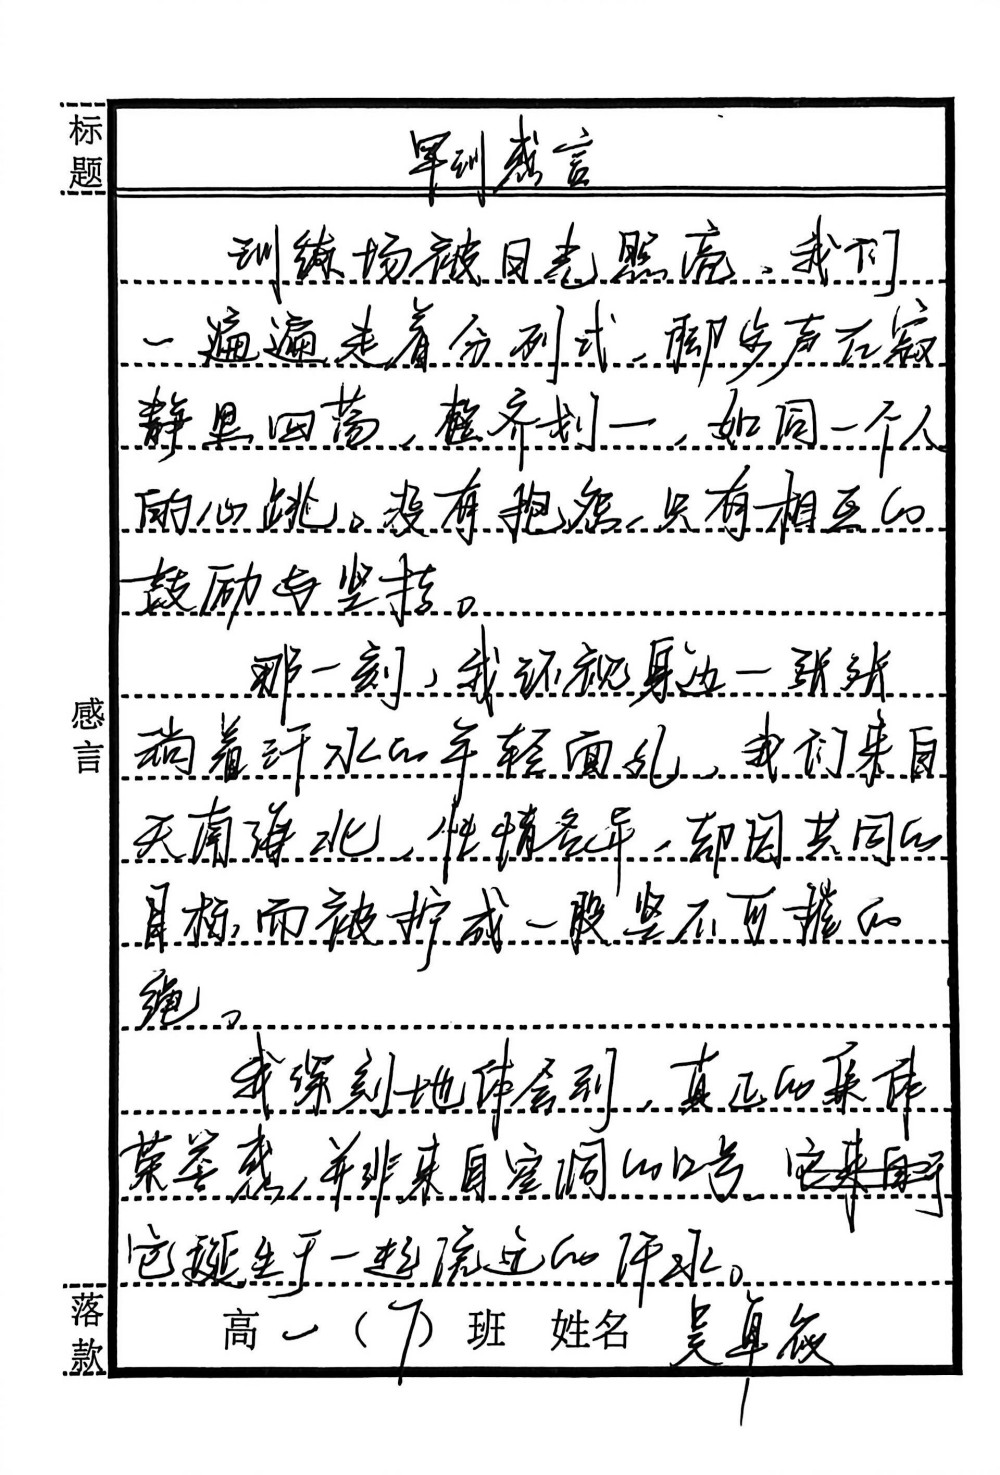 标题
军训感言
训练场被日光照亮，我们
一遍遍走着分列式，脚步声在寂
静里回荡，整齐划一，如同一个人
的心跳。没有抱怨，只有相互的
鼓励与坚持。
那一刻，我环视身边一张张
淌着汗水的年轻面孔，我们来自
天南海北，性情各异，却因共同的
目标，而被拧成一股坚不可摧的
绳。
感言
我深刻地体会到，真正的集体
荣誉感，并非来自空洞的口号，它来自于
它诞生于一起流过的汗水。
落款
高一（7）班 姓名 吴卓筱